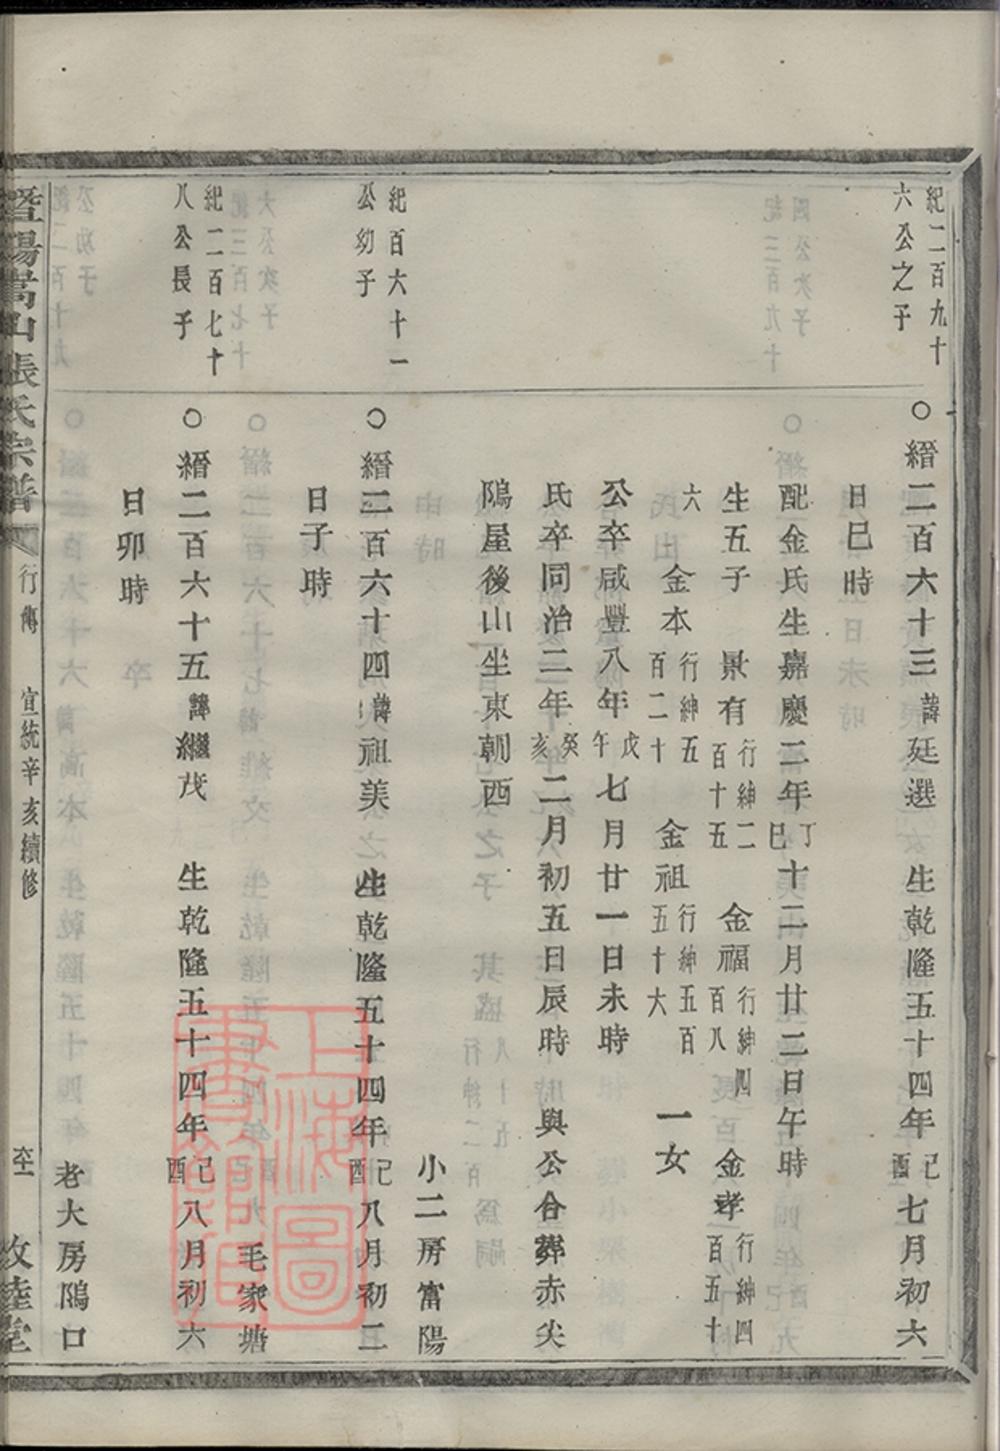 紀二百九十
六公之子
○縉二百六十三諱廷選 生乾隆五十四年己酉七月初六
日巳時
配金氏生嘉慶二年丁巳十二月廿二日午時
生五子 景有行紳二百十五 金福行紳四百八 金孝行紳四百五十
六 金本行紳五百二十 金祖行紳五百五十六 一女
公卒咸豐八年戊午七月廿一日未時
氏卒同治二年癸亥二月初五日辰時與公合葬赤尖
隝屋後山坐東朝西
小二房富陽
紀百六十一
公幼子
○縉二百六十四諱祖美 生乾隆五十四年己酉八月初三
日子時
毛家塘
紀二百七十
八公長子
○縉二百六十五諱繼茂 生乾隆五十四年己酉八月初六
日卯時
老大房隝口
暨陽嵩山張氏宗譜 行傳 宣統辛亥續修 敘陸堂
上海圖書館藏